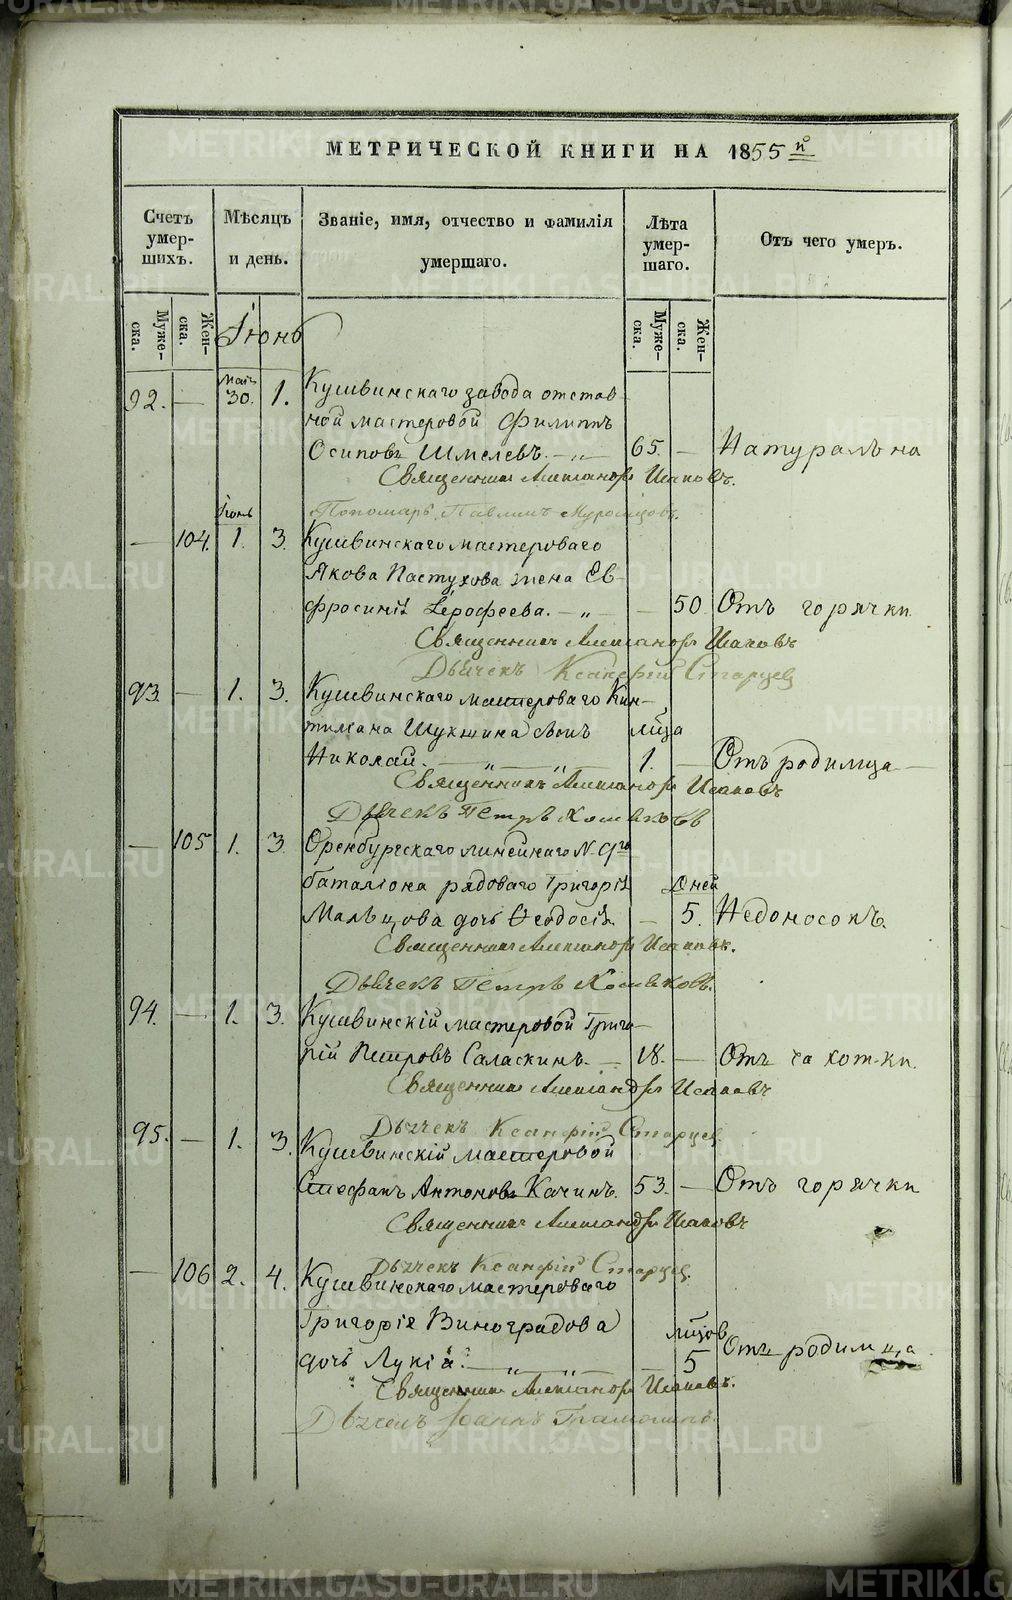 МЕТРИЧЕСКОЙ КНИГИ НА 1855й
Счетъ умер-шихъ.
Мѣсяцъ и день.
Званіе, имя, отчество и фамилія умершаго.
Лѣта умер-шаго.
Отъ чего умеръ.
Муже-ска.
Жен-ска.
Муже-ска.
Жен-ска.
Іюнь
92. — маія 30. 1. Кушвинскаго завода отстав-
ной мастеровой Филиппъ
Осиповъ Шмелевъ. — „ — 65. — Натурально
Священникъ Александръ Исаковъ.
Пономарь Павлинъ Муромцовъ.
Іюнь
— 104. 1. 3. Кушвинскаго мастероваго
Якова Пастухова жена Ев-
фросинія Ерофеева. — „ — 50. Отъ горячки.
Священникъ Александръ Исаковъ
Дьячекъ Ксанфій Старцевъ
93. — 1. 3. Кушвинскаго мастероваго
Шукшина сынъ мѣсяца
Николай. — „ — „ — 1. — Отъ родимца —
Священникъ Александръ Исаковъ
Дьячекъ Петръ
— 105 1. 3. Оренбургскаго линейнаго N. 9го
баталіона рядоваго Григорія дней
Мальцова дочь Ѳеодосія. — 5. Недоносокъ.
Священникъ Александръ Исаковъ.
Дьячекъ Петръ
94. — 1. 3. Кушвинскій мастеровой Григо-
рій Петровъ Саласкинъ. — 18. — Отъ чахотки.
Священникъ Александръ Исаковъ
Дьячекъ Ксанфій Старцев.
95. — 1. 3. Кушвинскій мастеровой
Стефанъ Антоновъ Качинъ. 53. — Отъ горячки
Священникъ Александръ Исаковъ
Дьячекъ Ксанфій Старцев.
— 106 2. 4. Кушвинскаго мастероваго
Григорія Виноградова мѣсяцов
дочь Лукія. — „ — „ — 5 Отъ родимца.
Священникъ Александръ Исаковъ.
Дьячекъ Іоаннъ
METRIKI.GASO-URAL.RU